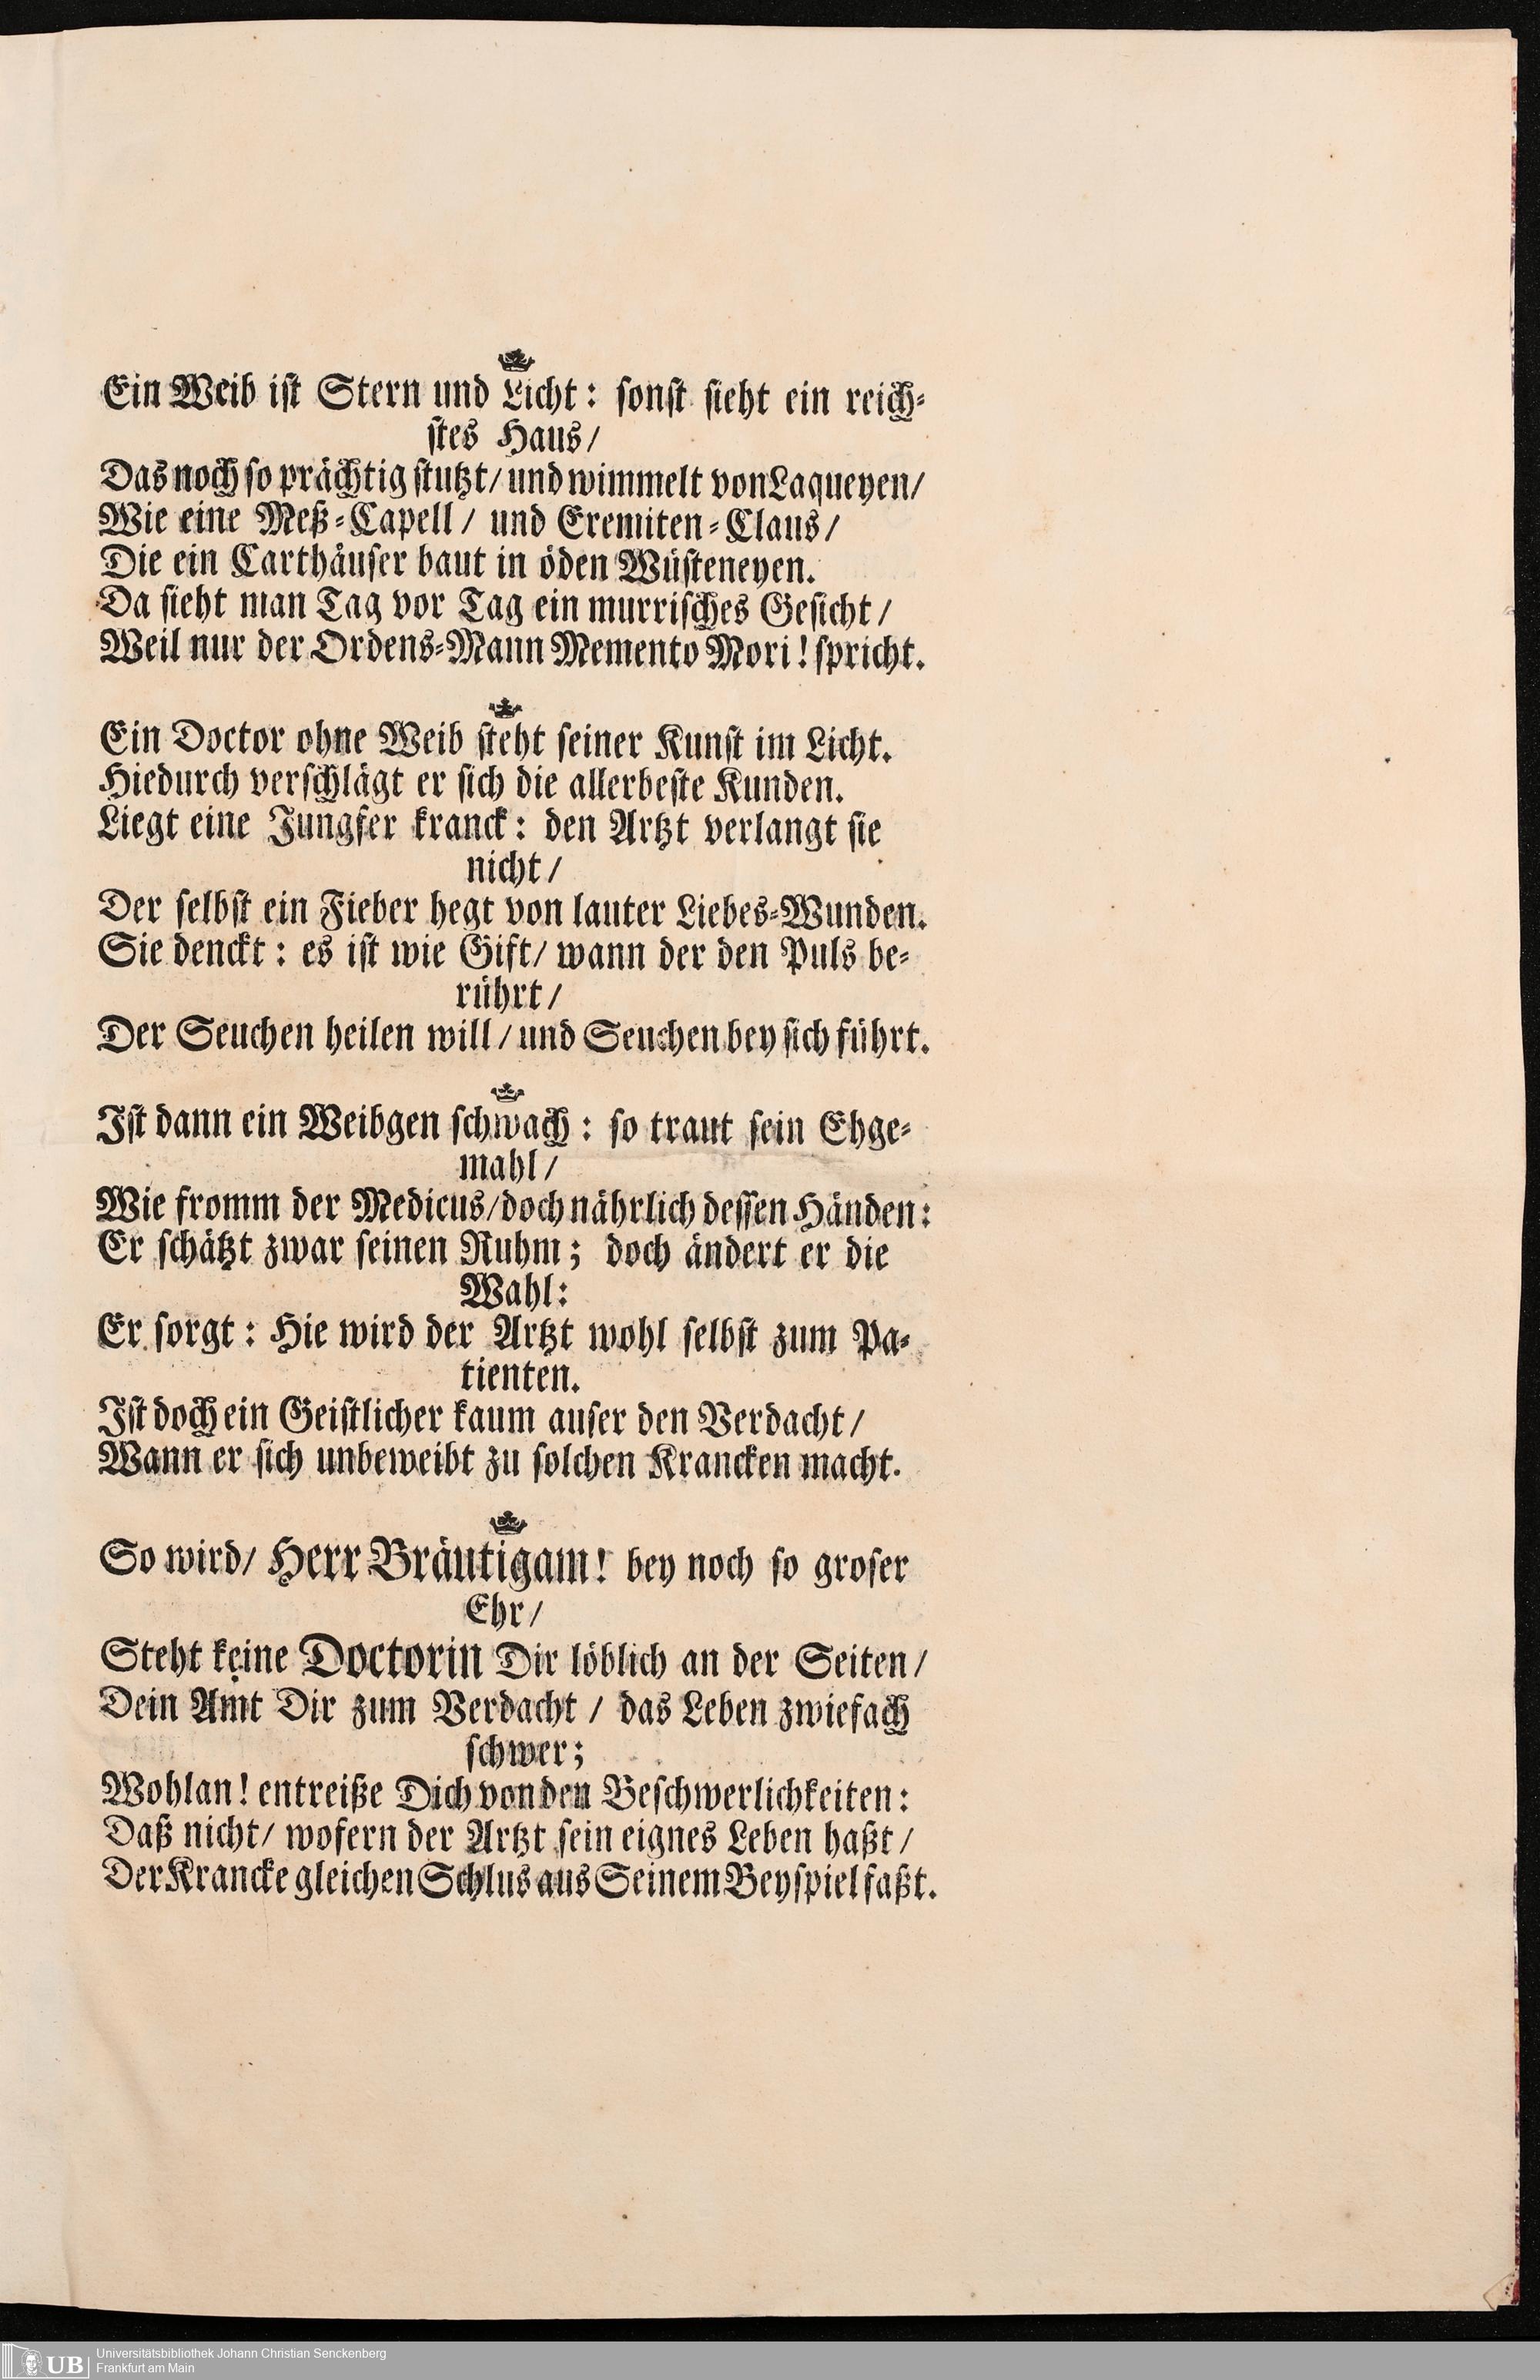 Ein Weib ist Stern und Licht: sonst sieht ein reich-
stes Haus/
Das noch so prächtig stutzt/ und wimmelt von Laqueyen/
Wie eine Meß-Capell/ und Eremiten-Claus/
Die ein Carthäuser baut in öden Wüsteneyen.
Da sieht man Tag vor Tag ein murrisches Gesicht/
Weil nur der Ordens-Mann Memento Mori! spricht.
Ein Doctor ohne Weib steht seiner Kunst im Licht.
Hiedurch verschlägt er sich die allerbeste Kunden.
Liegt eine Jungfer kranck: den Artzt verlangt sie
nicht/
Der selbst ein Fieber hegt von lauter Liebes-Wunden.
Sie denckt: es ist wie Gift/ wann der den Puls be-
rührt/
Der Seuchen heilen will/ und Seuchen bey sich führt.
Ist dann ein Weibgen schwach: so traut sein Ehge-
mahl/
Wie fromm der Medicus/ doch nährlich dessen Händen:
Er schätzt zwar seinen Ruhm; doch ändert er die
Wahl:
Er sorgt: Hie wird der Artzt wohl selbst zum Pa-
tienten.
Ist doch ein Geistlicher kaum auser den Verdacht/
Wann er sich unbeweibt zu solchen Krancken macht.
So wird/ Herr Bräutigam! bey noch so groser
Ehr/
Steht keine Doctorin Dir löblich an der Seiten/
Dein Amt Dir zum Verdacht/ das Leben zwiefach
schwer;
Wohlan! entreiße Dich von den Beschwerlichkeiten:
Daß nicht/ wofern der Artzt sein eignes Leben haßt/
Der Krancke gleichen Schlus aus Seinem Beyspiel faßt.
UB
Universitätsbibliothek Johann Christian Senckenberg
Frankfurt am Main